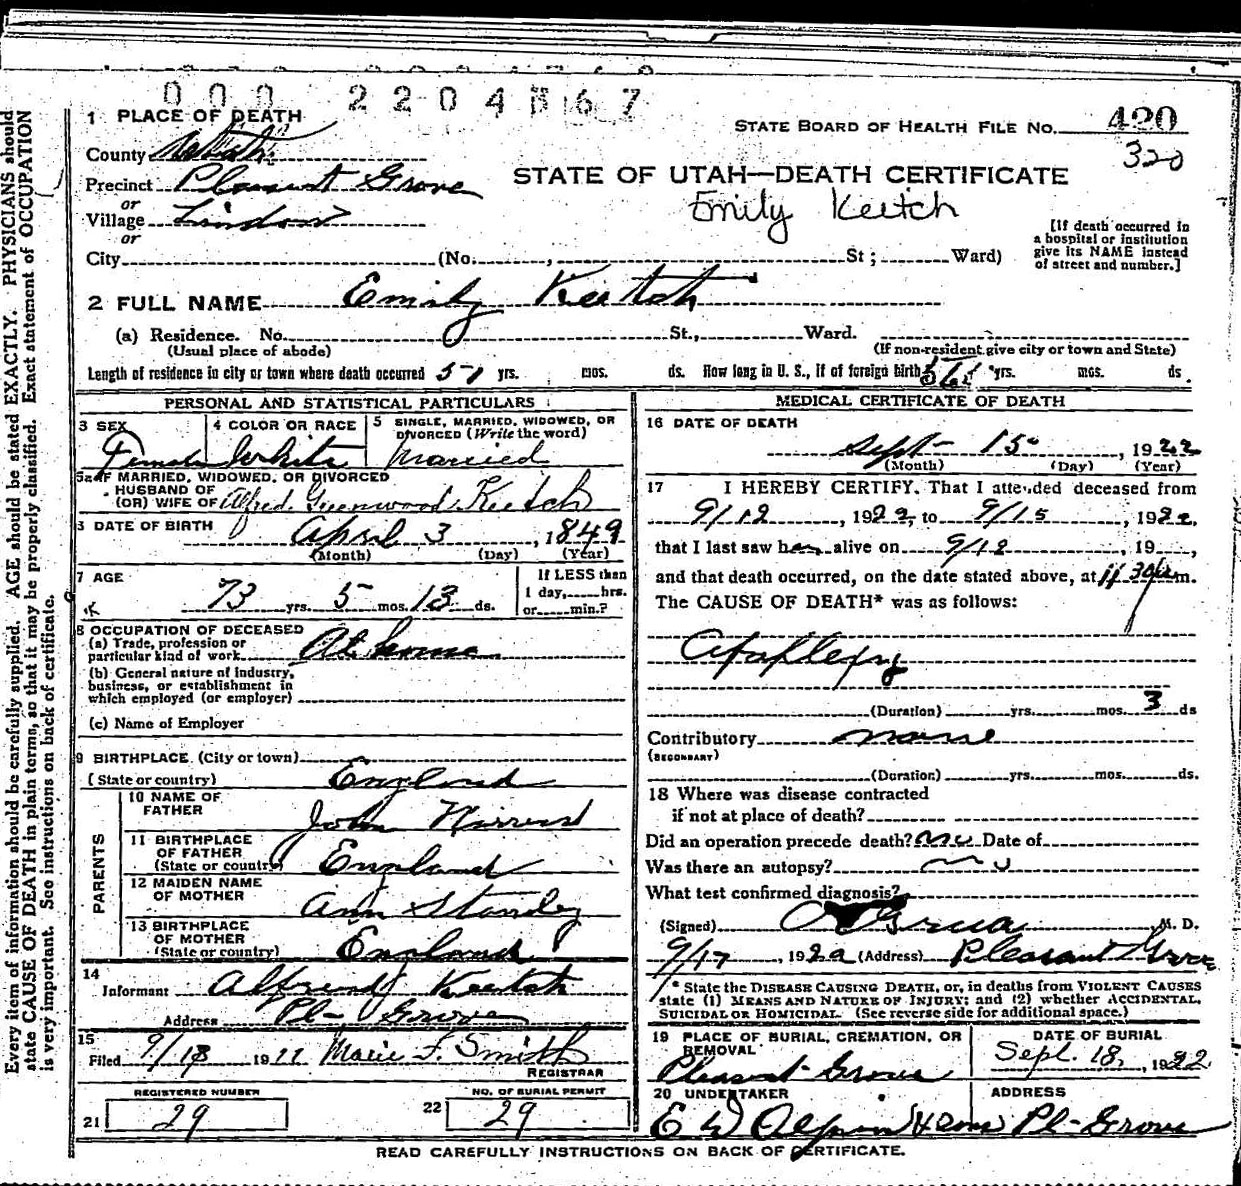 0 0 0 2 2 0 4 5 6 7
1 PLACE OF DEATH
STATE BOARD OF HEALTH FILE NO. 420
320
County Utah
Precinct Pleasant Grove
STATE OF UTAH—DEATH CERTIFICATE
or
Village Lindon
Emily Keetch
or
City (No. , St ; Ward)
[If death occurred in
a hospital or institution
give its NAME instead
of street and number.]
2 FULL NAME Emily Keetch
(a) Residence. No. St., Ward.
(Usual place of abode) (If non-resident give city or town and State)
Length of residence in city or town where death occurred 51 yrs. mos. ds. How long in U. S., if of foreign birth yrs. mos. ds.
PERSONAL AND STATISTICAL PARTICULARS
3 SEX 4 COLOR OR RACE 5 SINGLE, MARRIED, WIDOWED, OR
DIVORCED (Write the word)
Female White Married
5a IF MARRIED, WIDOWED, OR DIVORCED
HUSBAND OF
(OR) WIFE OF Alfred Greenwood Keetch
6 DATE OF BIRTH April 3, 1849
(Month) (Day) (Year)
7 AGE
73 yrs. 5 mos. 13 ds.
If LESS than
1 day, hrs.
or min.?
8 OCCUPATION OF DECEASED
(a) Trade, profession or
particular kind of work At home
(b) General nature of industry,
business, or establishment in
which employed (or employer)
(c) Name of Employer
9 BIRTHPLACE (City or town)
(State or country) England
PARENTS
10 NAME OF
FATHER John
11 BIRTHPLACE
OF FATHER
(State or country) England
12 MAIDEN NAME
OF MOTHER Ann Stanley
13 BIRTHPLACE
OF MOTHER
(State or country) England
14
Informant Alfred Keetch
Address Pl- Grove
15
Filed 9/18 1922 Marie F. Smith
REGISTRAR
REGISTERED NUMBER NO. OF BURIAL PERMIT
21 29 22 29
MEDICAL CERTIFICATE OF DEATH
16 DATE OF DEATH
Sept- 15- , 1922
(Month) (Day) (Year)
17 I HEREBY CERTIFY, That I attended deceased from
9/12 , 1922, to 9/15 , 1922,
that I last saw her alive on 9/12 , 19 ,
and that death occurred, on the date stated above, at 11 30 m.
The CAUSE OF DEATH* was as follows:
Apoplexy
(Duration) yrs. mos. 3 ds
Contributory none
(SECONDARY)
(Duration) yrs. mos. ds.
18 Where was disease contracted
if not at place of death?
Did an operation precede death? no Date of
Was there an autopsy? no
What test confirmed diagnosis?
(Signed) Grua M. D.
9/17 , 1922 (Address) Pleasant Grove
* State the DISEASE CAUSING DEATH, or, in deaths from VIOLENT CAUSES
state (1) MEANS AND NATURE OF INJURY; and (2) whether ACCIDENTAL,
SUICIDAL OR HOMICIDAL. (See reverse side for additional space.)
19 PLACE OF BURIAL, CREMATION, OR
REMOVAL
Pleasant Grove
DATE OF BURIAL
Sept. 18, 1922
20 UNDERTAKER ADDRESS
E W Olpin Home Pl- Grove
READ CAREFULLY INSTRUCTIONS ON BACK OF CERTIFICATE.
Every item of information should be carefully supplied. AGE should be stated EXACTLY. PHYSICIANS should
state CAUSE OF DEATH in plain terms, so that it may be properly classified. Exact statement of OCCUPATION
is very important. See instructions on back of certificate.